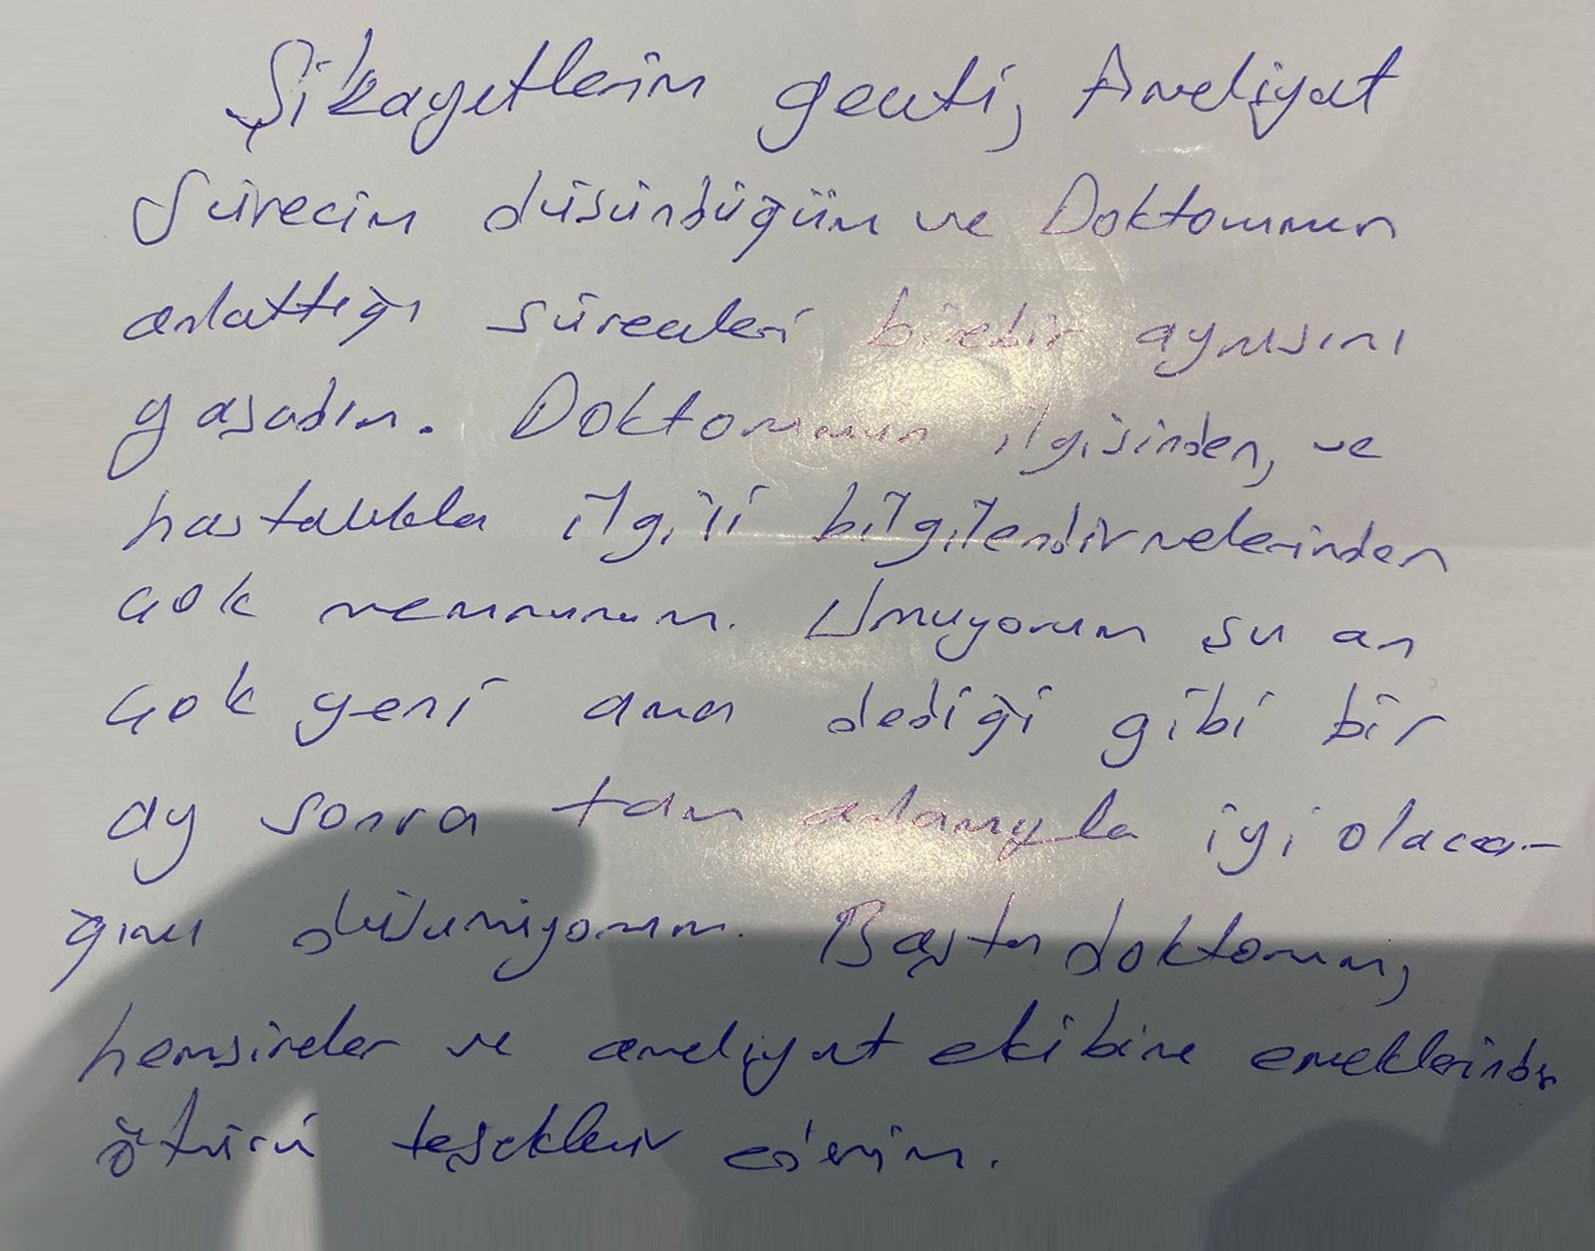 Şikayetlerim geçti, Ameliyat
Sürecim düşündüğüm ve Doktorumun
anlattığı süreçleri birebir aynısını
yaşadım. Doktorumun ilgisinden, ve
hastalıkla ilgili bilgilendirmelerinden
çok memnunum. Umuyorum şu an
çok yeni ama dediği gibi bir
ay sonra tam anlamıyla iyi olaca-
ğımı düşünüyorum. Başta doktorum,
hemşireler ve ameliyat ekibine emeklerinden
ötürü teşekkür ederim.